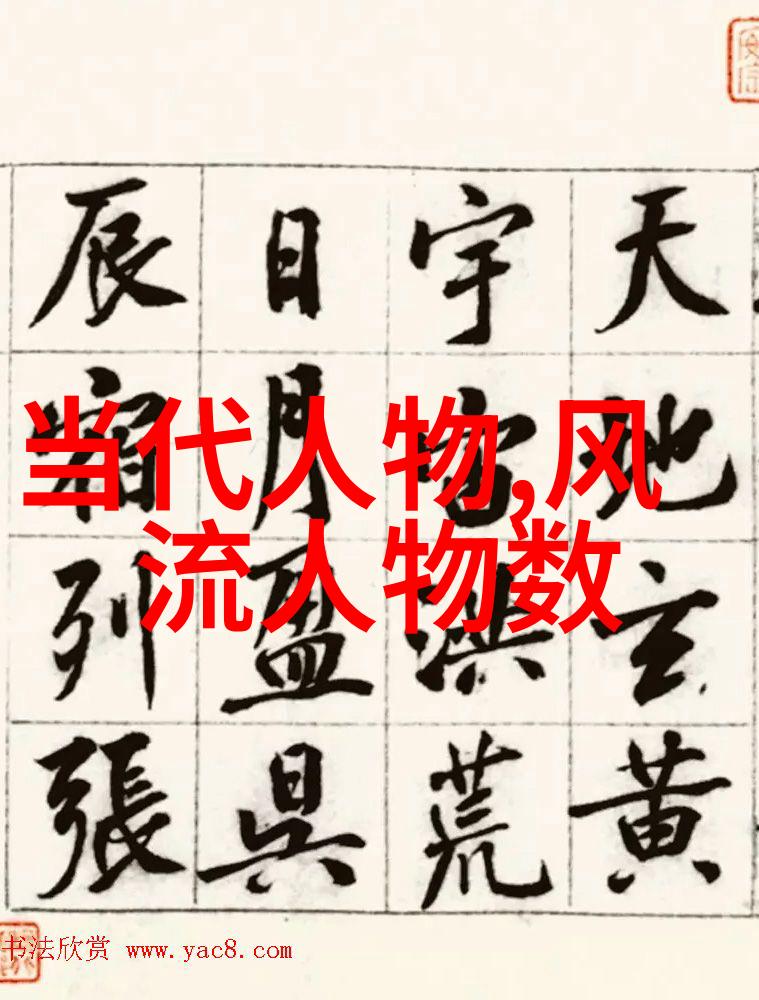 天地玄黄
宇宙洪荒
日月盈昃
辰宿列張
当代人物,风
流人物数
书法欣赏 www.yac8.com